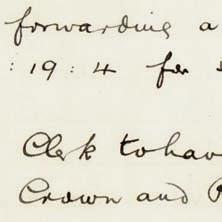 forwarding a
: 19 : 4 for
Clerk to hav
Crown and P